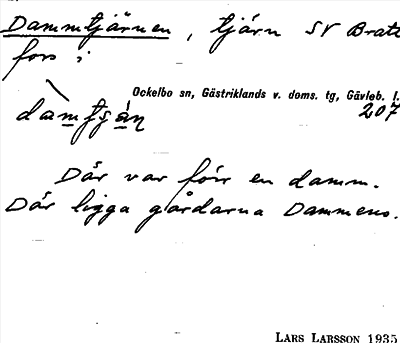 Dammtjärnen, tjärn SV Bratt
fors;
Ockelbo sn, Gästriklands v. doms. tg, Gävleb. l.
207
Där var förr en damm.
Där ligga gårdarna Dammens.
LARS LARSSON 1935